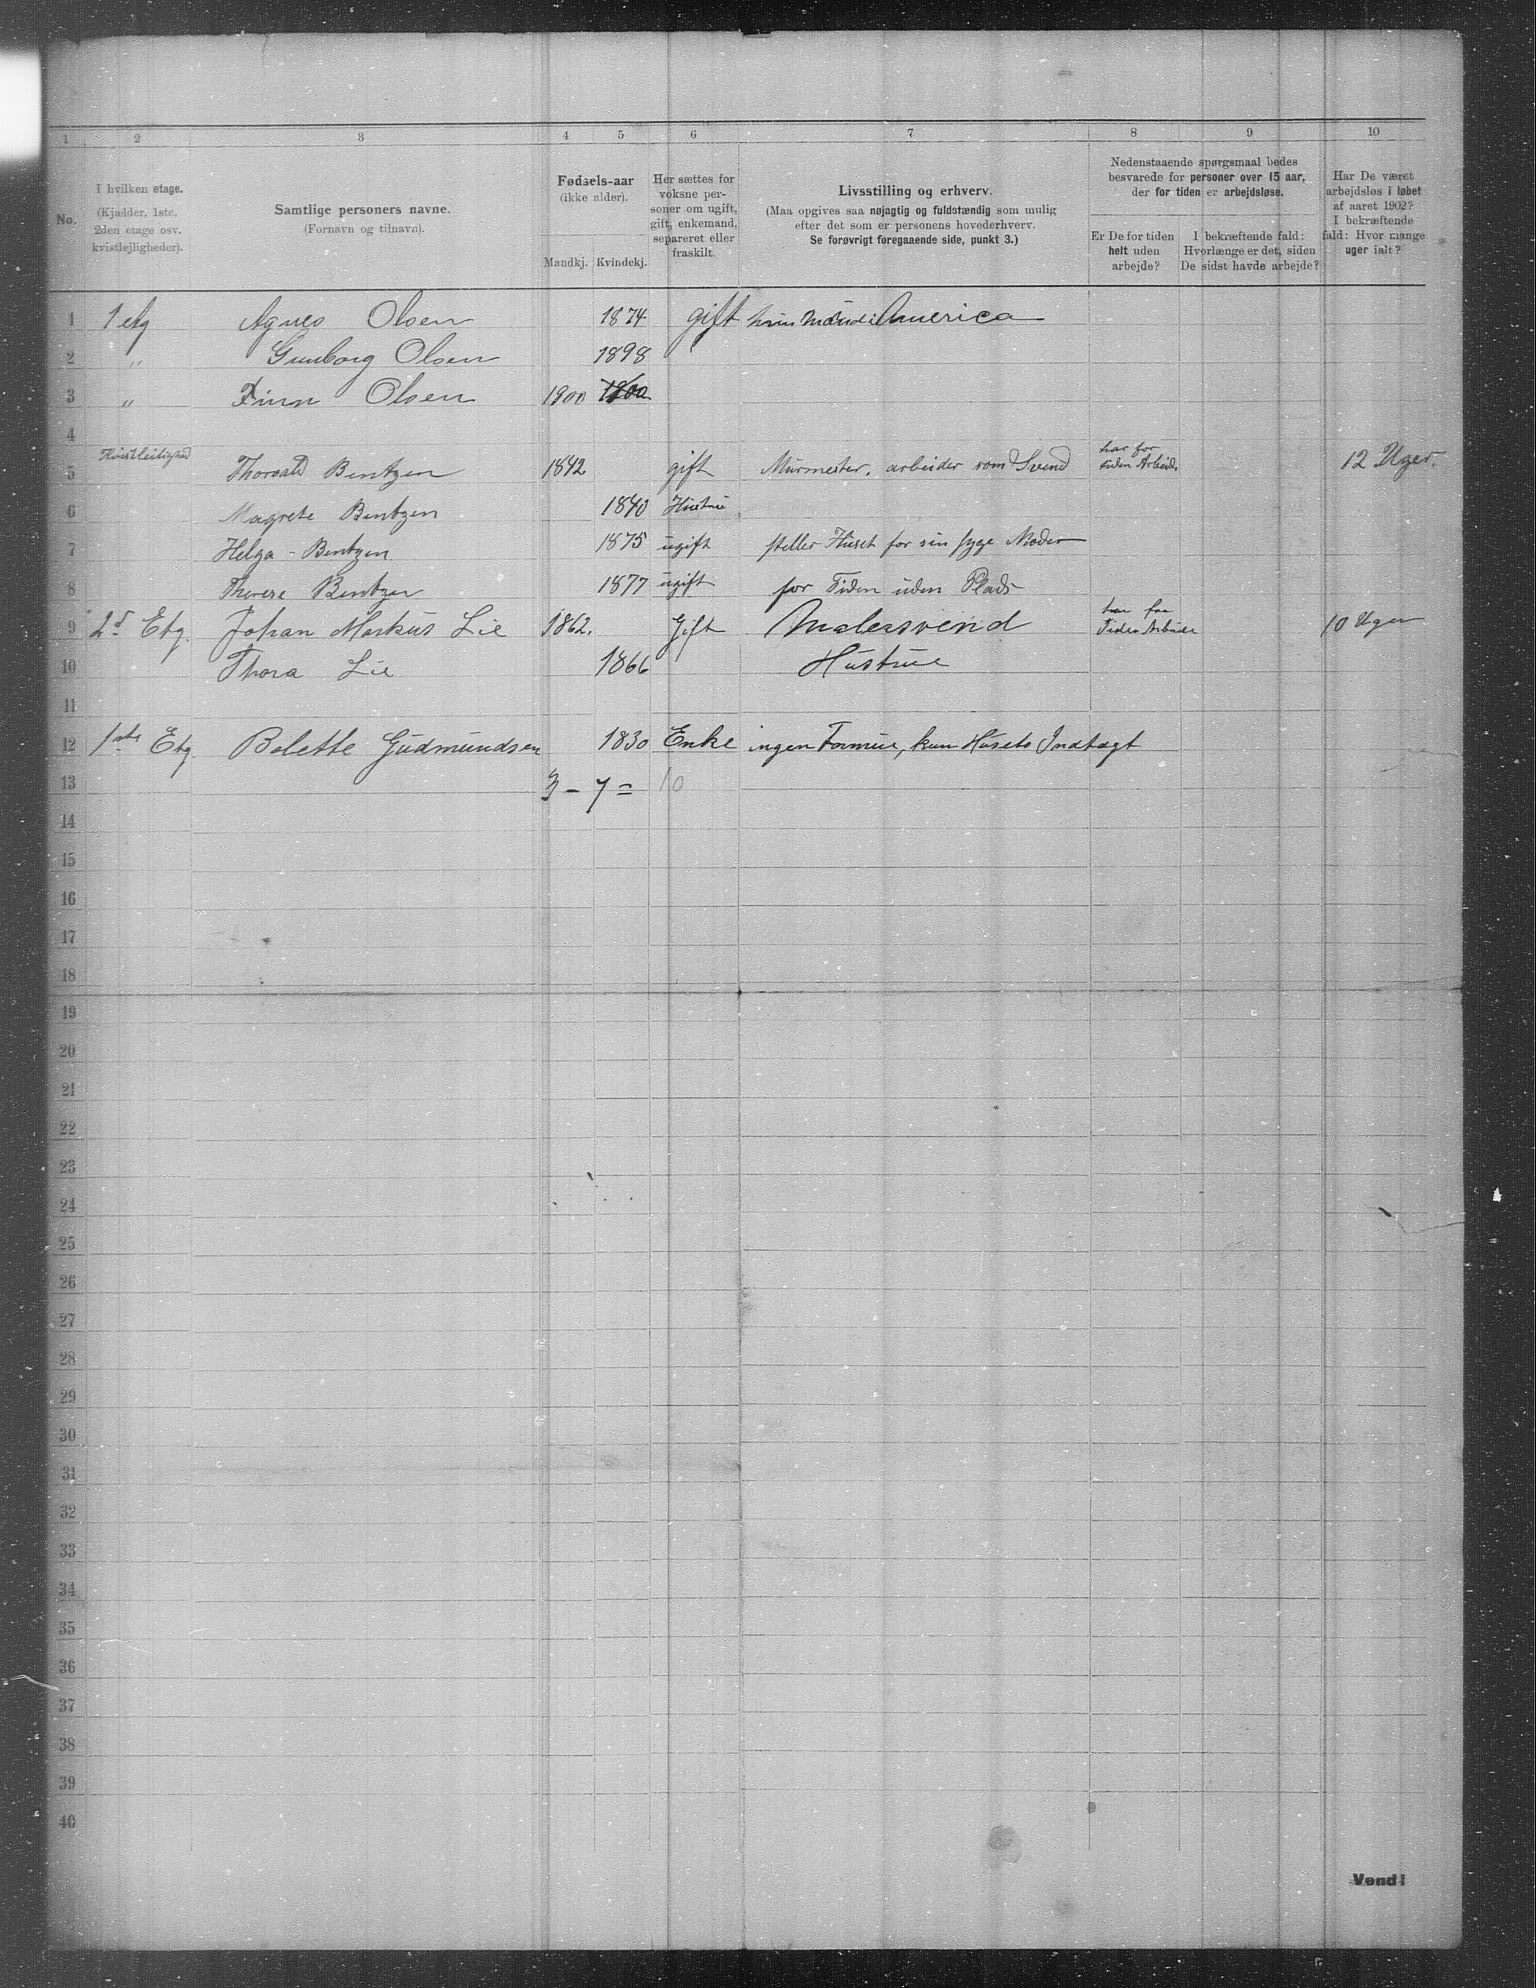 1 2 3 4 5 6 7 8 9 10
No.
I hvilken etage.
(Kjælder, 1ste,
2den etage osv.
kvistlejligheder).
Samtlige personers navne.
(Fornavn og tilnavn).
Fødsels-aar
(ikke alder).
Mandkj. Kvindekj.
Her sættes for
voksne per-
soner om ugift,
gift, enkemand,
separeret eller
fraskilt.
Livsstilling og erhverv.
(Maa opgives saa nøjagtig og fuldstændig som mulig
efter det som er personens hovederhverv.
Se forøvrigt foregaaende side, punkt 3.)
Nedenstaaende spørgsmaal bedes
besvarede for personer over 15 aar,
der for tiden er arbejdsløse.
Er De for tiden
helt uden
arbejde?
I bekræftende fald:
Hvorlænge er det, siden
De sidst havde arbejde?
Har De været
arbejdsløs i løbet
af aaret 1902?
I bekræftende
fald: Hvor mange
uger ialt?
1 1 etg Agnes Olsen 1874 gift America
2 " Gunborg Olsen 1898
3 " Finn Olsen 1900 1900
4
5 Kvistleilighed Thorvald Bentzen 1842 gift Murmester, arbeider som Svend har for tiden Arbeide 12 Uger.
6 Magrete Bentzen 1840 Hustru
7 Helga - Bentzen 1875 ugift steller Huset for sin syge Moder
8 Therese Bentzen 1877 ugift for Tiden uden Plads
9 2d Etg. Johan Markus Lie 1862. Gift Malersvend har for Tiden Arbeide 10 Uger
10 Thora Lie 1866 Hustrue
11
12 1ste Etg. Bolette Gudmundsen 1830 Enke ingen Formue, kun Husets Indtægt
13 3 - 7 = 10
14
15
16
17
18
19
20
21
22
23
24
25
26
27
28
29
30
31
32
33
34
35
36
37
38
39
40
Vend!